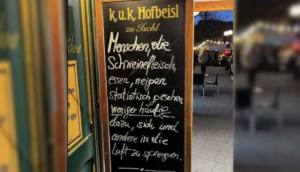 k.u.k. Hofbeisl
zu Ischl
Menschen, die
Schweinefleisch
essen, neigen
statistisch gesehen
weniger häufig
dazu, sich und
andere in die
Luft zu sprengen.